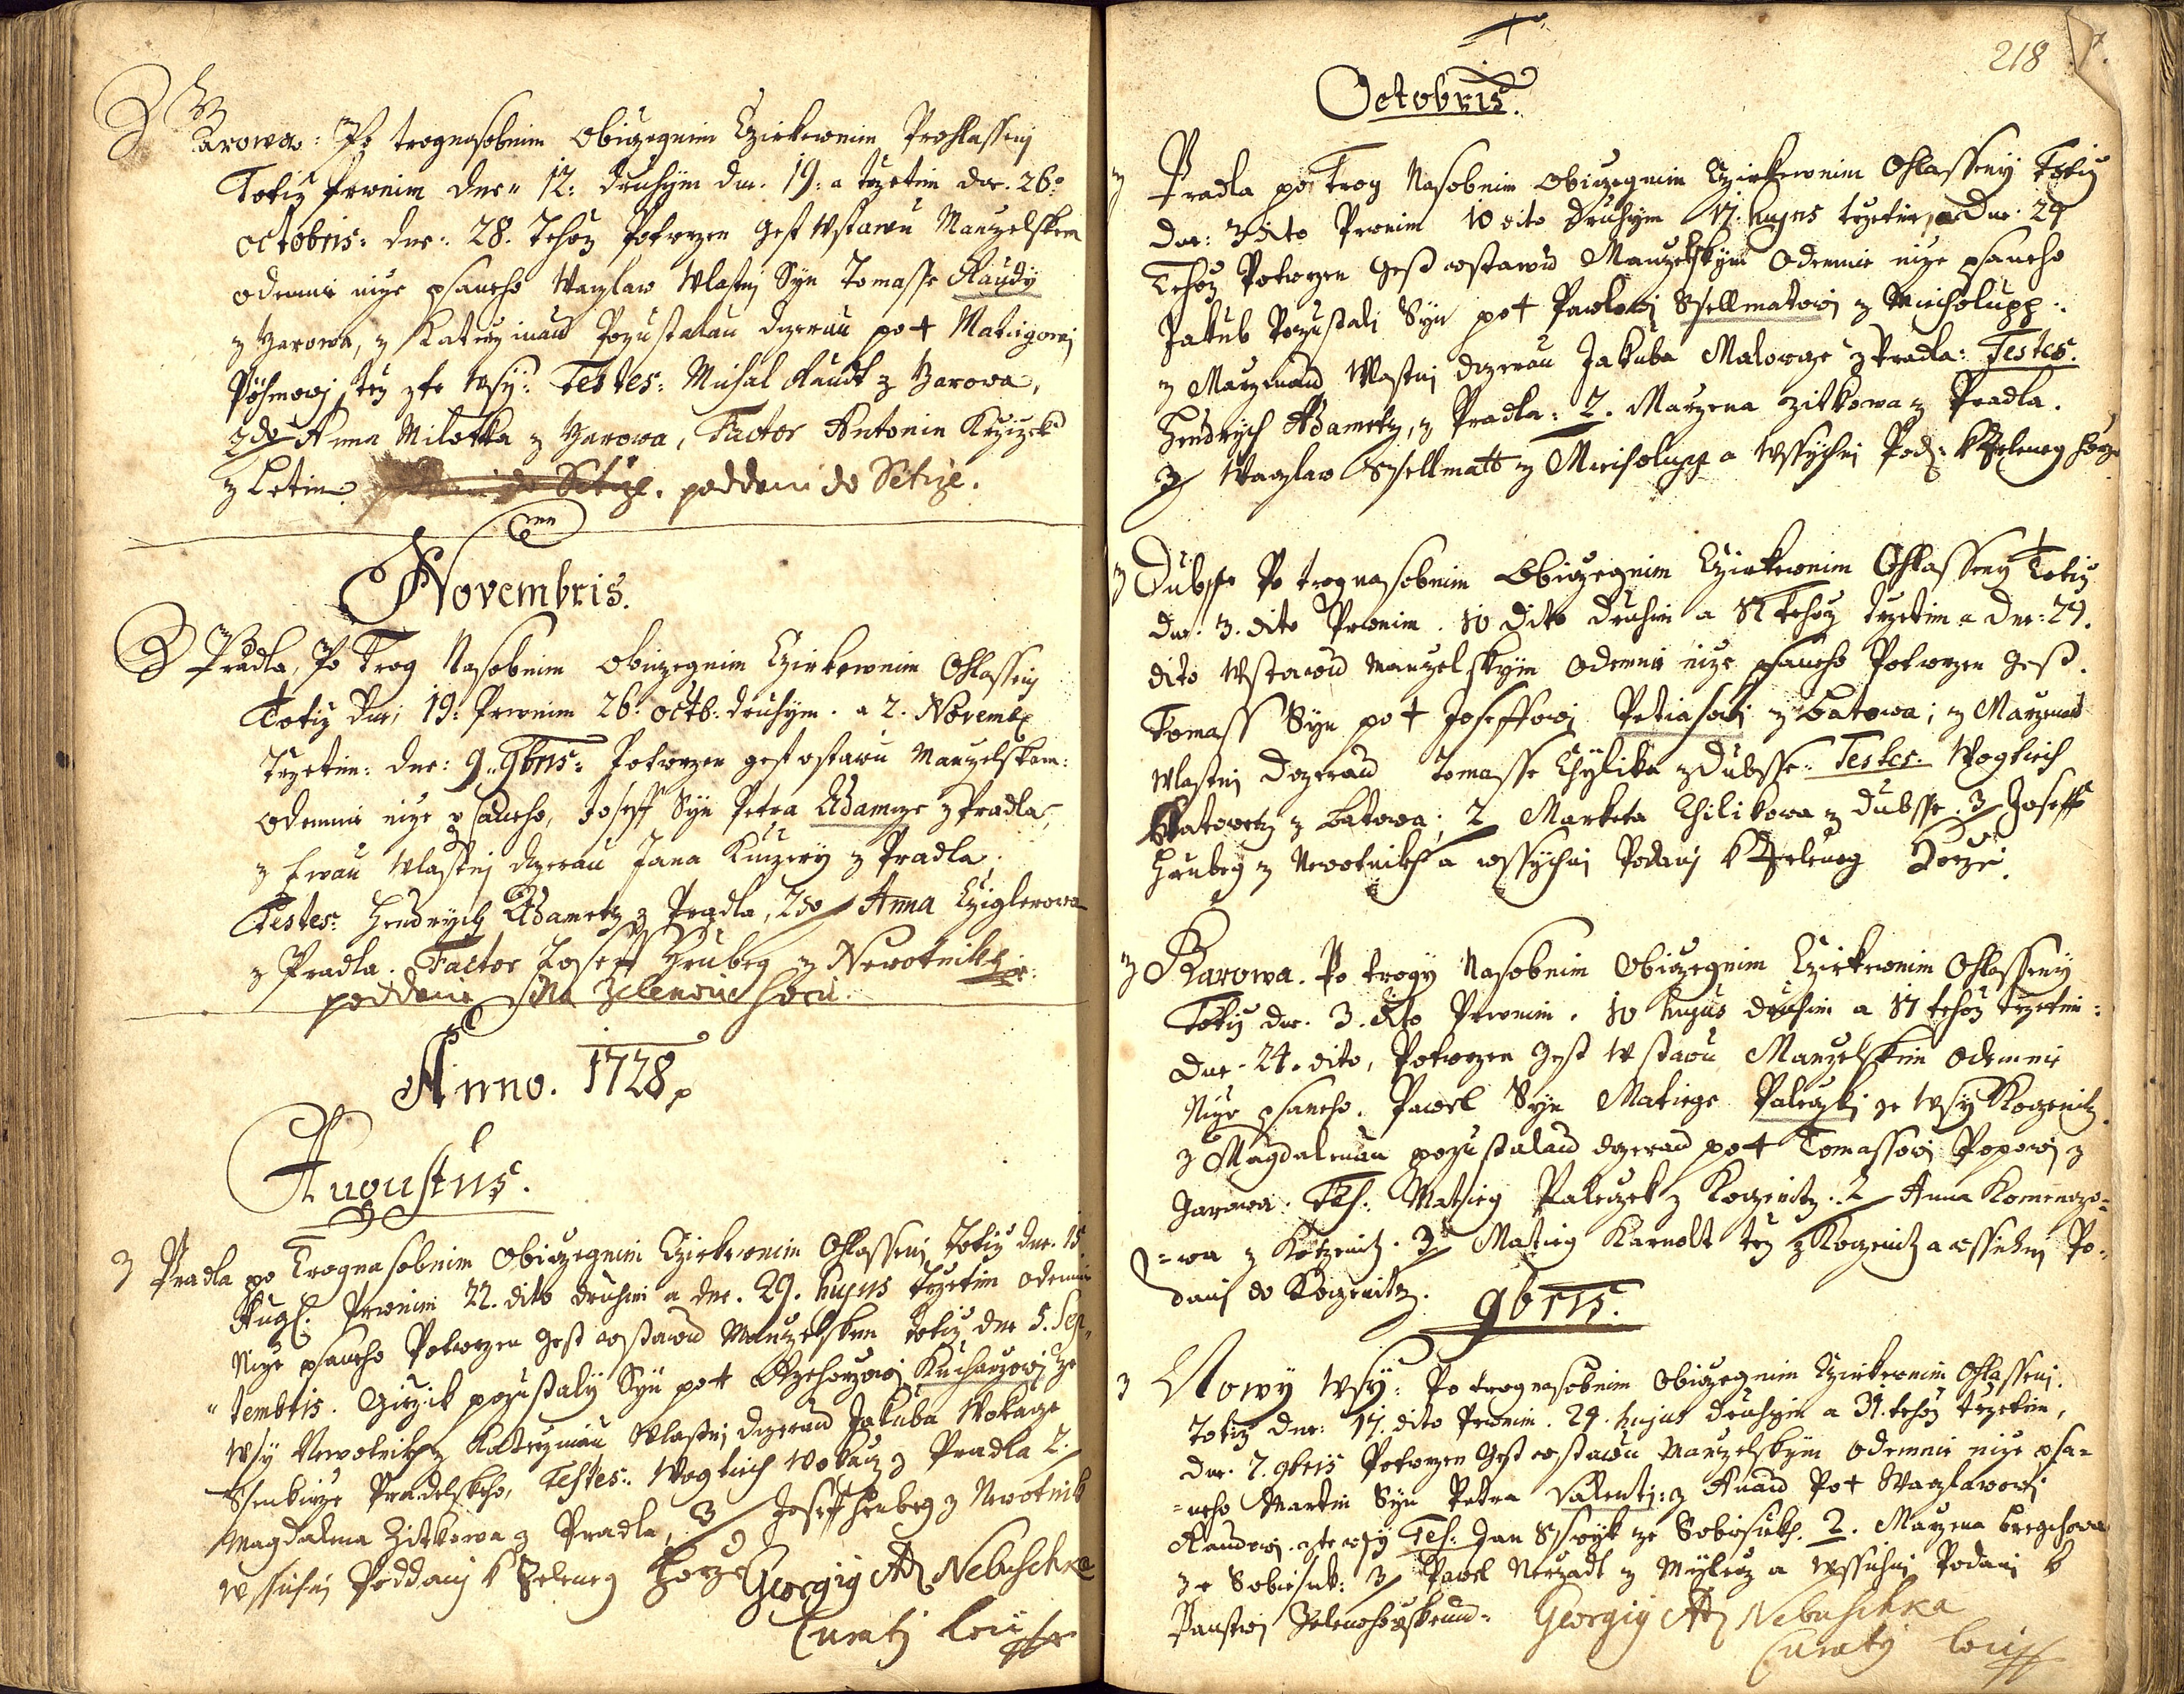 Z Žarowa: Po trognasobnim Obiczegnim Czirkewnim Prohlassenj
Totiz Prwnim dne 12: Druhým dne. 19: a trzetim dne. 26:
octobris: dne: 28. Tehoz Potwrzen gest Wstawu Manzelskem
odemne nize psaneho Waczlaw Wlastnj Syn Tomasse Raudÿ
z Žarowa, z Katerzinau Pozustalau dczerau po † Matiegowj
tez z te Wsÿ: Testes: Michal Raudt z Žarowa,
2do Anna Milotka z Žarowa, Factor Antonin Krzizek
z Letin. poddani do Setize.
Novembris.
Z Pradla, Po Trog Nasobnim obiczegnim Czirkewnim Ohlassenj
Totiz dne, 19: Prwnim 26: octb: druhým. a 2. Novemb
Trzetim: dne: 9. 9bris: Potwrzen gest wstawu Manzelskem:
odemne nize psaneho, Joseff Syn Petra Adamcze z Pradla,
z Ewau Wlastnj dczerau Jana Kuczery z Pradla.
Testes: Hendrych Adametz z Pradla, 2do Anna Cziglerowa
z Pradla. Factor Joseff Hrubey z Newotnik
poddanie Na Zelenou horu.
Anno. 1728
Augustus.
Z Pradla po Trognasobnim Obiczegnim Czirkewnim Ohlassenj Totiz dne. 15
Aug. Prwnim 22. dito druhim a dne. 29. hujus Trzetim odemne
Nize psaneho Potwrzen gest wstawu Manzelskem totiz dne 5. Sep-
tembris. Girzik pozustalÿ Syn po † Rzehorzowj Kucharzowj ze
Wsÿ Newotnik z Katerzinau Wlastnj dczerau Jakuba Wokacze
Ssenkirze Pradelskeho, Testes: Wogtiech Wokacz z Pradla 2.
Magdalena Zitkowa z Pradla, 3 Joseff Hrubey z Newotnik
wssichnj Poddanj k Zeleney Horze Georgig Ad Nebuschka
Curatj Loci
218
Octobris.
z Pradla po Trog Nasobnim Obiczegnim Czirkewnim Ohlassenÿ Totiz
dne: 3 dito Prwnim 10 dito Druhým 17. hujus trzetim, a dne. 24
Tehoz Potwrzen gest wstawu Manzelským Odemne nize psaneho
Jakub Pozustalj Syn po † Pawlowj Ssellmatowj z Miecholupp.
z Marzenau Wlastnj dczerau Jakuba Malowcze z Pradla: Testes.
Hendrÿch Adametz, z Pradla: 2. Marzena Zitkowa z Pradla.
3 Waczlaw Ssellmatt z Miecholupp a Wssÿchnj Pod: k Zeleney horze
z Dubcze Po trognasobnim Obiczegnim Czirkewnim Ohlassenÿ Totiz
dne. 3. dito Prwnim. 10 dito druhim a 17 tehoz trzetim a dne: 24.
dito Wstawu Manzelským Odemne nize psaneho Potwrzen gest.
Tomass Syn po † Joseffowj Petiasowj z Batowa; z Marzenau
Wlastnj dczerau Tomasse Chÿlika z Dubcze. Testes. Wogtiech
z Batowa; 2 Marketa Chilikowa z Dubcze. 3 Joseff
Hrubey z Newotnikh a wssÿchnj Podanj k Zeleney Horze.
z Žarowa. Po trogÿ Nasobnim Obiczegnim Czirkewnim Ohlassenÿ
Totiz dne. 3. dito Prwnim. 10 hujus druhim a 17 tehoz trzetim:
dne. 24. dito, Potwrzen gest W stawu Manzelskim odemne
Nize psaneho. Pawel Syn Matiege Paleczkj ze Wsÿ Kozenitz.
z Magdalenau pozustalau dczerau po † Tomassowj Popowj z
Žarowa. Tes: Matieg Paleczek z Kozenitz. 2 Anna Komenczo-
=wa z Kotzenitz. 3 Matieg Karnolt tez z Kozenitz a wssichni Po-
danj do Kozenitz.
9bris.
z Nowÿ Wsÿ: Po trognasobnim Obiczegnim Czirkewnim Ohlassenj.
Totiz dne: 17. dito Prwnim. 24. hujus druhým a 31. tehoz trzetim,
dne. 7. 9bris Potwrzen gest wstawu Manzelským odemne nize psa-
=neho Martin Syn Petra Valentj: z Annau Po † Waczlawowj
Raudowj. z te wsÿ Tes: Jan Sswÿk ze Sobiesuk. 2. Marzena
ze Sobiesuk: 3 Pawel z a wssichnj Podanj k
Panstwj Zelenohorskemu. Georgig Ad Nebuschka
Curatj loci